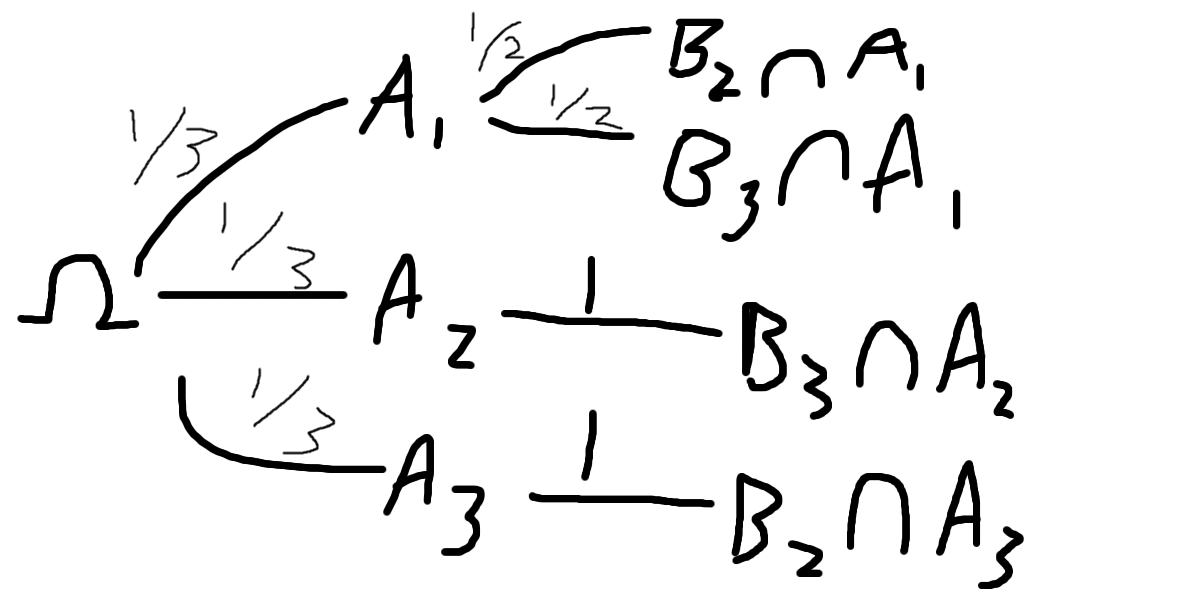 1/2 B₂ ∩ A₁
1/3 A₁ 1/2 B₃ ∩ A₁
Ω 1/3 A₂ 1 B₃ ∩ A₂
1/3 A₃ 1 B₂ ∩ A₃